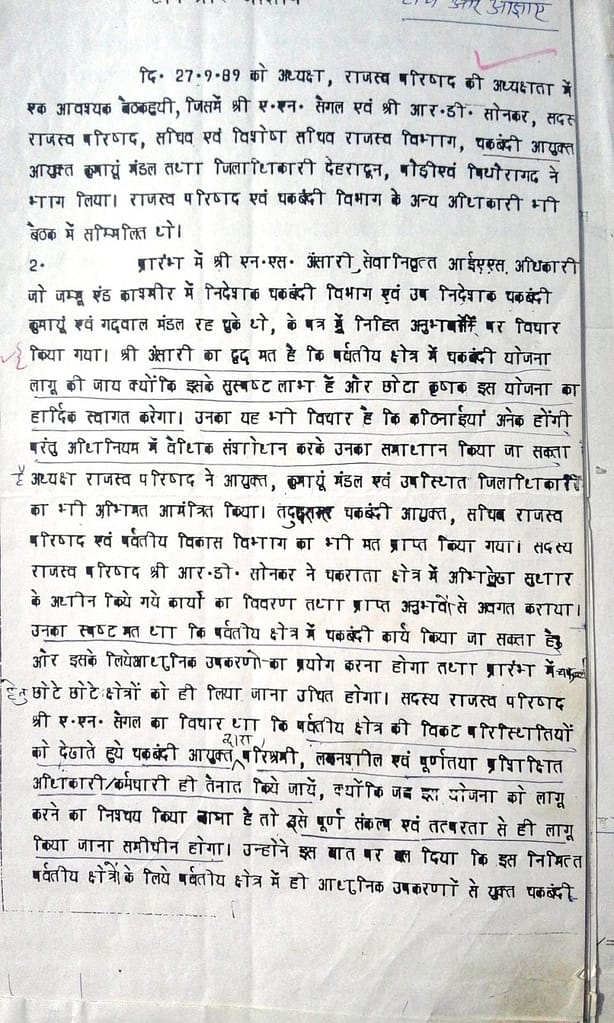 और आज्ञाएं
दि. 27.9.89 को अध्यक्षा, राजस्व परिषद की अध्यक्षता में
एक आवश्यक बैठक हुयी, जिसमें श्री ए.एन. सेगल एवं श्री आर.डी. सोनकर, सदस्य
राजस्व परिषाद, सचिव एवं विशेष सचिव राजस्व विभाग, चकबंदी आयुक्त
आयुक्त कुमायूं मंडल तथा जिलाधिकारी देहरादून, पौडी एवं पिथौरागढ ने
भाग लिया। राजस्व परिषद एवं चकबंदी विभाग के अन्य अधिकारी भी
बैठक में सम्मिलित थे।
2. प्रारंभ में श्री एन.एस. अंसारी, सेवानिवृत्त आईएएस, अधिकारी
जो जम्मू एंड काश्मीर में निदेशक चकबंदी विभाग एवं उप निदेशक चकबंदी
कुमायूं एवं गढवाल मंडल रह चुके थे, के पत्र में निहित अनुभावों पर विचार
किया गया। श्री अंसारी का दृढ मत है कि पर्वतीय क्षेत्र में चकबंदी योजना
लागू की जाय क्योंकि इसके सुस्पष्ट लाभ हैं और छोटा कृषक इस योजना का
हार्दिक स्वागत करेगा। उनका यह भी विचार है कि कठिनाईयां अनेक होंगी
परंतु अधिनियम में वैधिक संशोधन करके उनका समाधान किया जा सकता
है अध्यक्षा राजस्व परिषाद ने आयुक्त, कुमायूं मंडल एवं उपस्थित जिलाधिकारी
का भी अभिमत आमंत्रित किया। तदुपरान्त चकबंदी आयुक्त, सचिव राजस्व
परिषाद एवं पर्वतीय विकास विभाग का भी मत प्राप्त किया गया। सदस्य
राजस्व परिषाद श्री आर.डी. सोनकर ने चकराता क्षेत्र में अभिलेख सुधार
के अधीन किये गये कार्यो का विवरण तथा प्राप्त अनुभावों से अवगत कराया।
उनका स्पष्ट मत था कि पर्वतीय क्षेत्र में चकबंदी कार्य किया जा सकता है
और इसके लिये आधुनिक उपकरणो का प्रयोग करना होगा तथा प्रारंभ में
हेतु छोटे छोटे क्षेत्रों को ही लिया जाना उचित होगा। सदस्य राजस्व परिषाद
श्री ए.एन. सेगल का विचार था कि पर्वतीय क्षेत्र की विकट परिस्थितियों
को देखते हुये चकबंदी आयुक्त द्वारा परिश्रमी, लगनशील एवं पूर्णतया प्रशिक्षित
अधिकारी/कर्मचारी ही तैनात किये जायें, क्योंकि जब इस योजना को लागू
करने का निश्चय किया जाना है तो इसे पूर्ण संकल्प एवं तत्परता से ही लागू
किया जाना समीचीन होगा। उन्होने इस बात पर बल दिया कि इस निमित्त
पर्वतीय क्षेत्रों के लिये पर्वतीय क्षेत्र में ही आधुनिक उपकरणों से युक्त चकबंदी